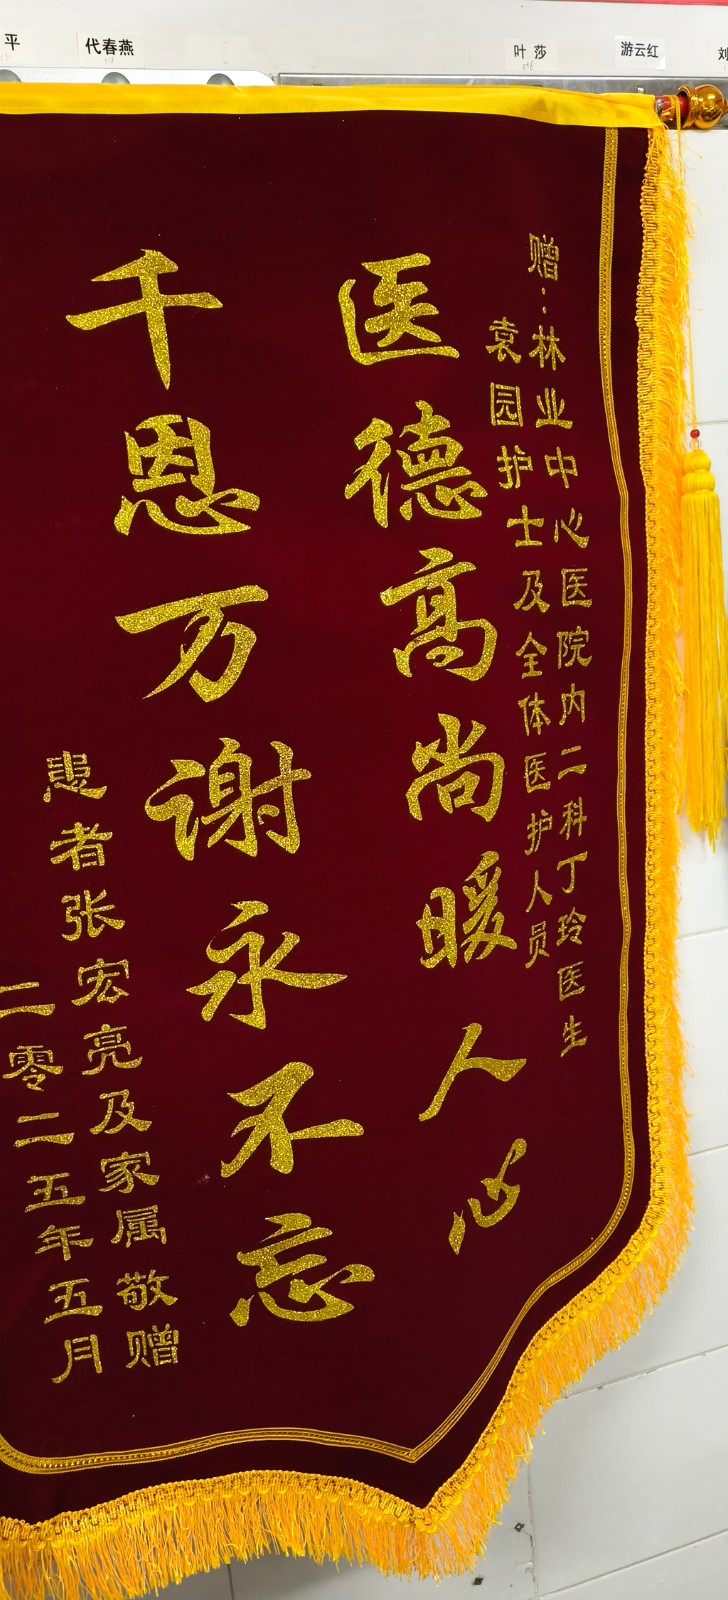 平
代春燕
叶莎
游云红
赠：林业中心医院内二科丁玲医生
袁园护士及全体医护人员
医德高尚暖人心
千恩万谢永不忘
患者张宏亮及家属敬赠
二零二五年五月